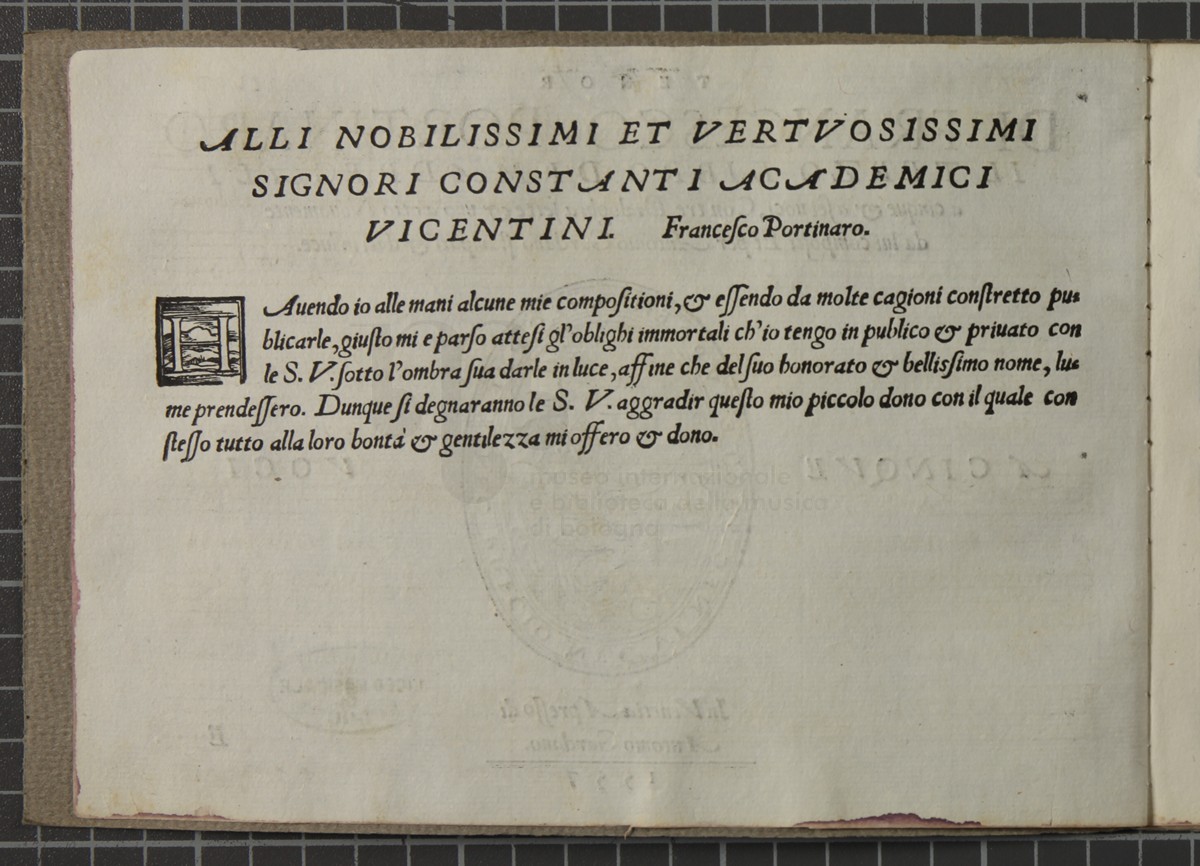 ALLI NOBILISSIMI ET VERTVOSISSIMI
SIGNORI CONSTANTI ACADEMICI
VICENTINI. Francesco Portinaro.
HAuendo io alle mani alcune mie compositioni, & essendo da molte cagioni constretto pu-
blicarle, giusto mi e parso attesi gl'oblighi immortali ch'io tengo in publico & priuato con
le S. V. sotto l'ombra sua darle in luce, affine che del suo honorato & bellissimo nome, lu-
me prendessero. Dunque si degnaranno le S. V. aggradir questo mio piccolo dono con il quale con
stesso tutto alla loro bontà & gentilezza mi offero & dono.
museo internazionale
e biblioteca della musica
di bologna